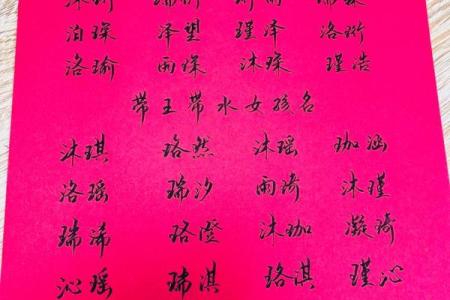 泊琛 泽琞 瑾泽 洛珩
洛瑜 雨琛 沐琛 瑾浩
带王带水女孩名
沐琪 珞然 沐瑶 珈涵
洛瑶 瑞汐 雨琦 沐瑾
瑞浠 珞澄 沐珈 凝琦
沁瑶 瑞淇 珞淇 瑾沁